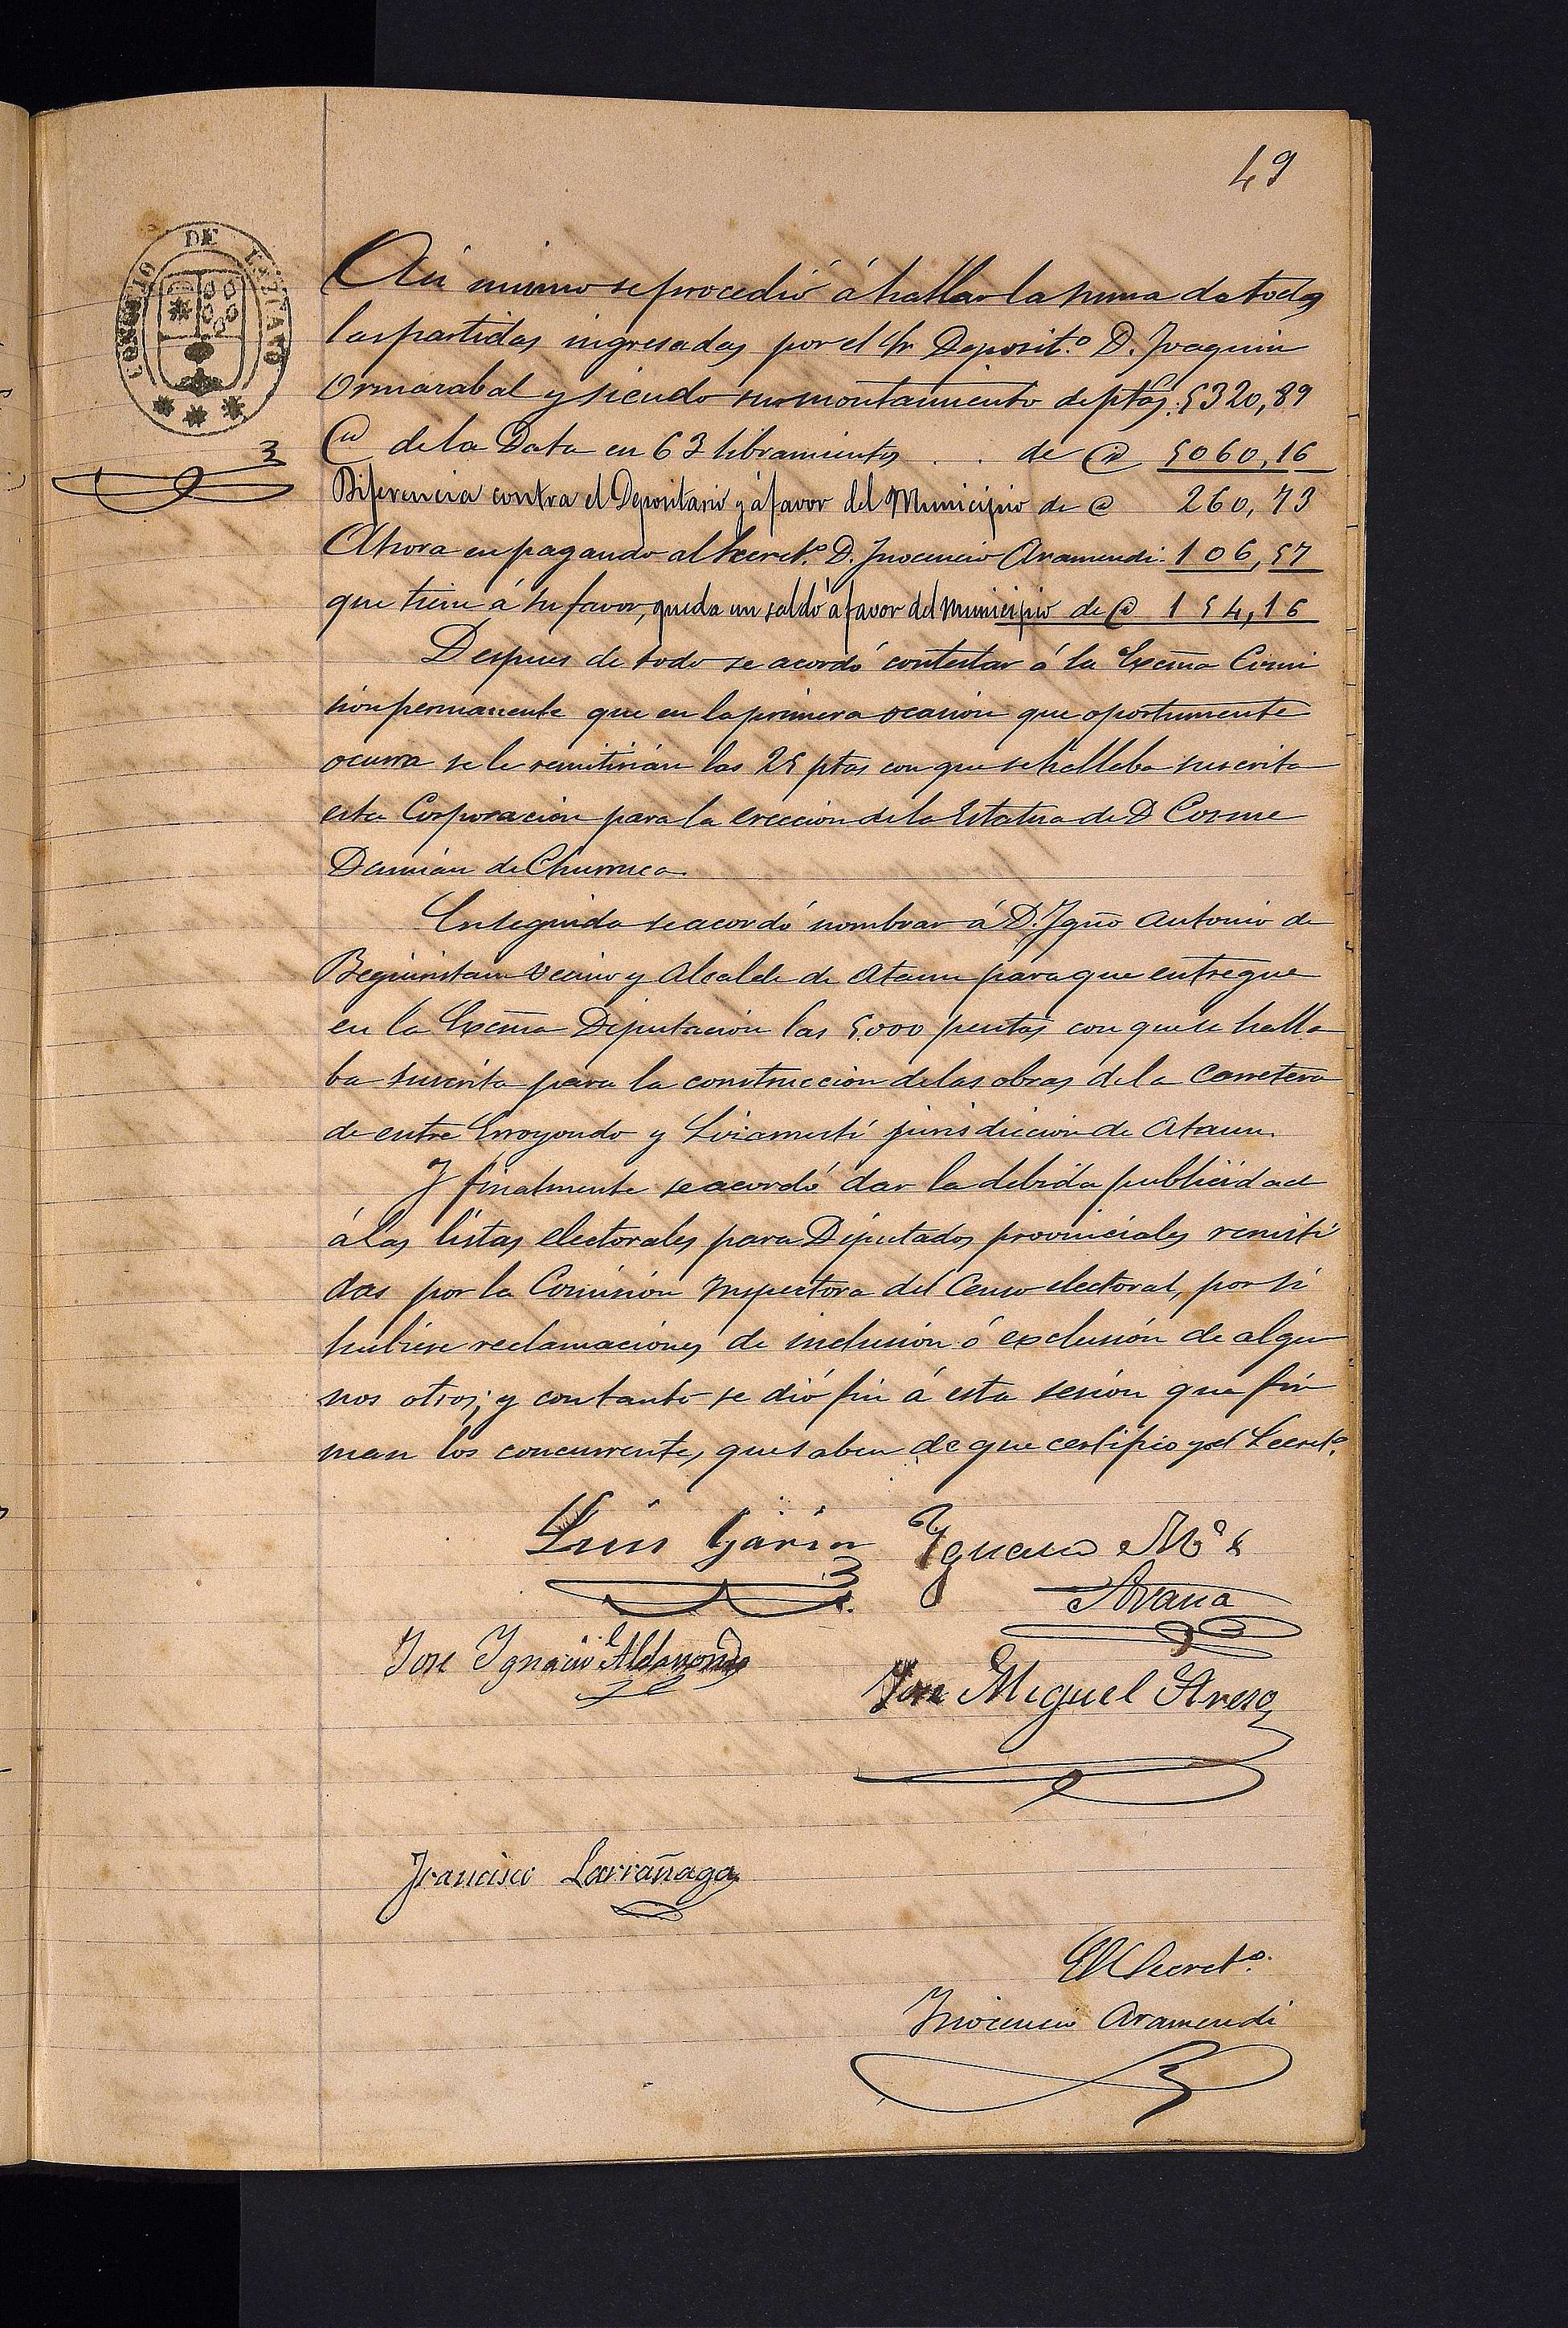 49
CONSEJO DE LAZCANO
Asi mismo se procedió á hallar la suma de todas
las partidas ingresadas por el Sr Deposit.º D. Joaquin
Ormazabal y siendo su montamiento de ptas. 5320,89
@ de la Data en 63 libramientos . . de @ 5060,16
Diferencia contra el Depositario y á favor del Municipio de @ 260,73
Ahora en pagando al Secret.º D. Inocencio Aramendi. 106,57
que tiene á su favor, queda un saldo á favor del municipio de @ 154,16
Despues de todo se acordó contestar á la Excma Comi
sion permanente que en la primera ocasion que oportumente
ocurra se le remitirán las 25 ptas con que se hallaba suscrita
esta Corporacion para la ereccion de la Estatua de D Cosme
Damián de Churruca
Enseguida se acordó nombrar á D. Igno Antonio de
Beguiristain vecino y Alcalde de Ataun para que entregue
en la Excma Diputacion las 5.000 pesetas con que se halla
ba suscrita para la construccion de las obras de la Carretera
de entre Erroyondo y Lizarrusti jurisdiccion de Ataun.
Y finalmente se acordó dar la debida publicidad
á las listas electorales para Diputados provinciales remiti
das por la Comisión Inspectora del Censo electoral, por si
hubiese reclamaciones de inclusión ó exclusión de algu
nos otros; y con tanto se dió fin á esta sesion que fir
man los concurrentes, que saben de que certifico yo el Secret.º
Luis Garin Ygnacio M.ª de
Arana
Jose Ygnacio Aldasoro
Jose Miguel Areso
Francisco Larrañaga
El Secret.º
Inocencio Aramendi